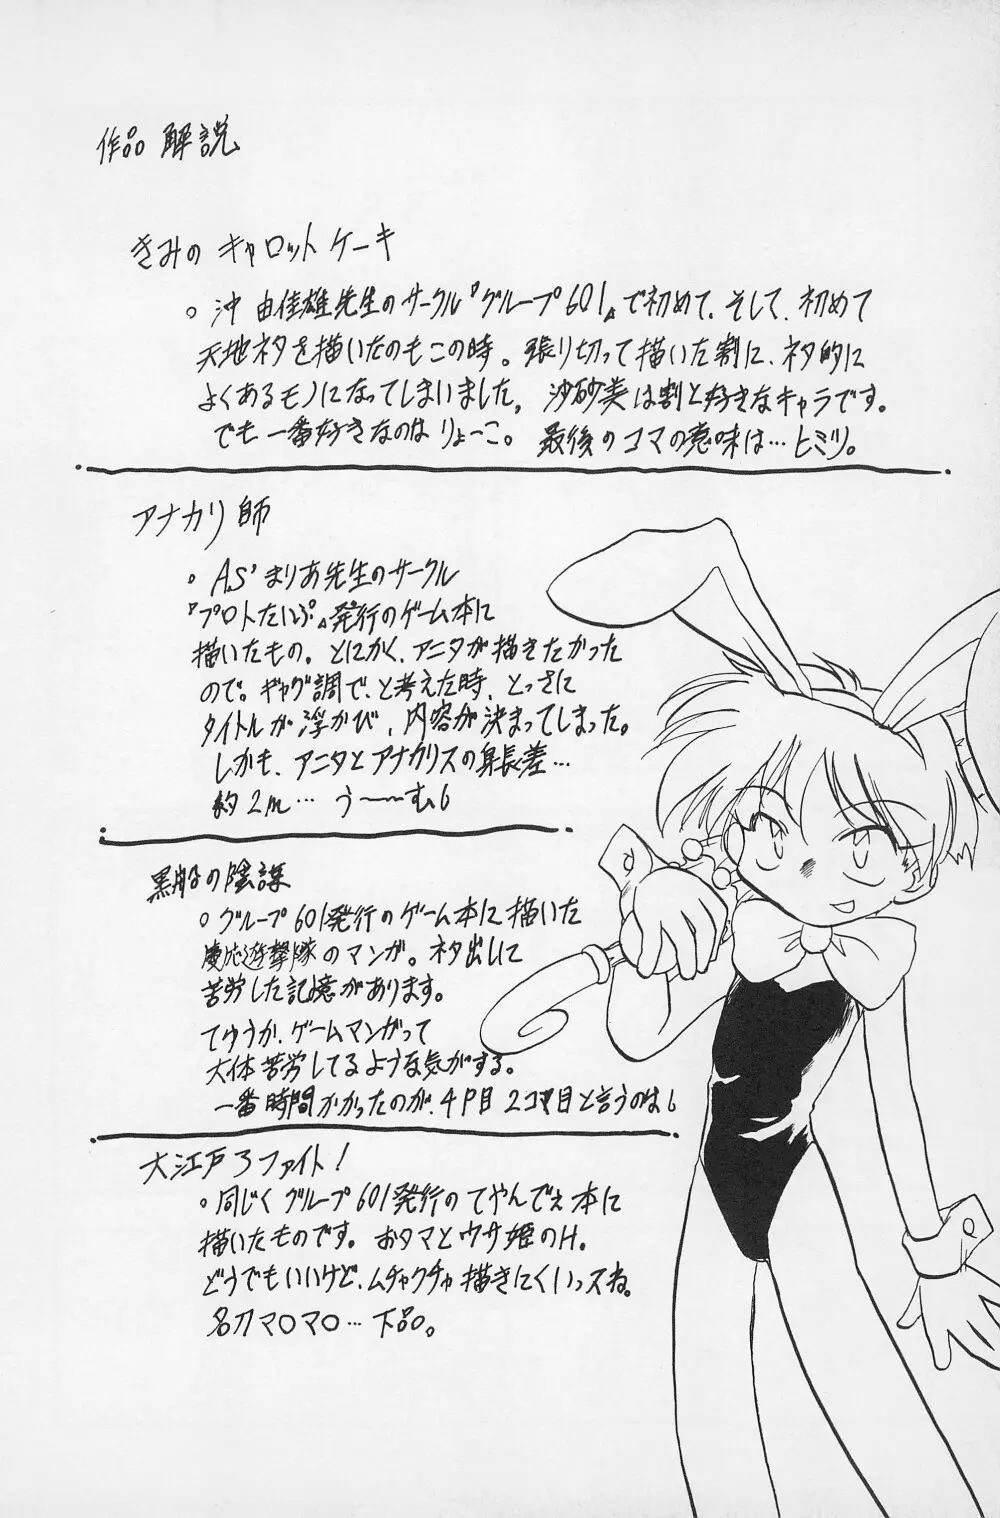 作品解説
きみのキャロットケーキ
○沖由佳雄先生のサークル『グループ601』で初めて、そして、初めて
天地ネタを描いたのもこの時。張り切って描いた割に、ネタ的に
よくあるモノになってしまいました。沙砂美は割と好きなキャラです。
でも一番好きなのはりょーこ。最後のコマの意味は…ヒミツ。
アナカリ師
○AS'まりあ先生のサークル
『プロトたいぷ』発行のゲーム本に
描いたもの。とにかく、アニタが描きたかった
ので。ギャグ調で、と考えた時、とっさに
タイトルが浮かび、内容が決まってしまった。
しかも、アニタとアナカリスの身長差…
約2m…う〜〜む。
黒船の陰謀
○グループ601発行のゲーム本に描いた
慶応遊撃隊のマンガ。ネタ出しで
苦労した記憶があります。
てゆうか、ゲームマンガって
大体苦労してるような気がする。
一番時間かかったのが、4P目2コマ目と言うのは。
大江戸ろファイト!
○同じくグループ601発行のてやんでぇ本に
描いたものです。おタマとウサ姫のH。
どうでもいいけど、ムチャクチャ描きにくいっスね。
名刀マ○マ○…下品。